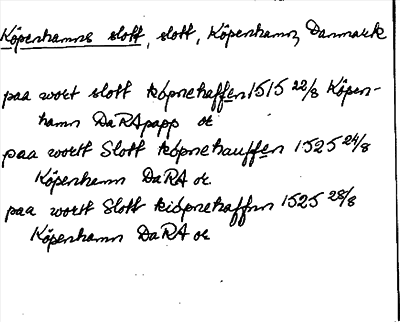 Köpenhamns slott, slott, Köpenhamn, Danmark
paa wort slott kópnehaffen 1515 22/8 Köpen-
hamn DaRA papp or
paa wortt Slott kópnehauffen 1525 24/8
Köpenhamn DaRA or.
paa wortt Slott kiópnehaffnn 1525 28/8
Köpenhamn DaRA or